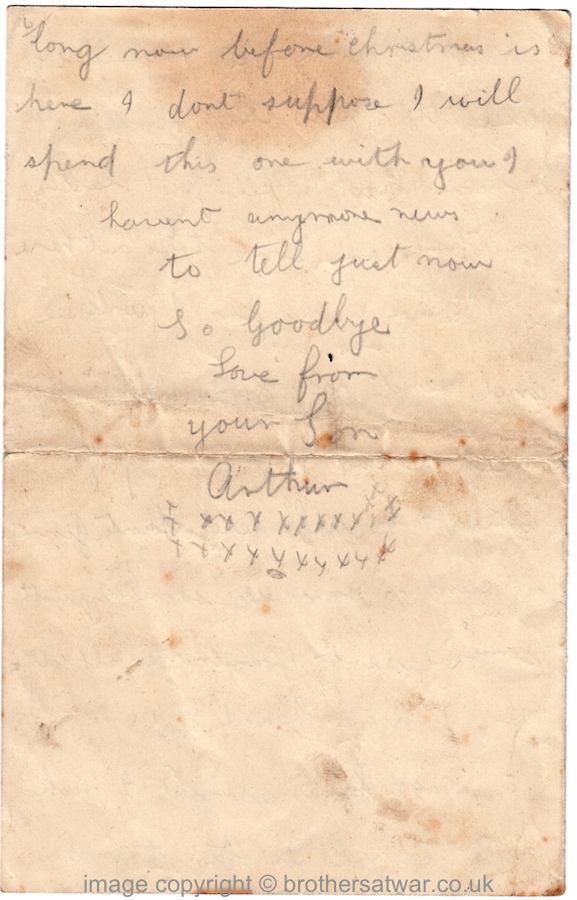 long now before christmas is
here I dont suppose I will
spend this one with you I
havent anymore news
to tell just now
So Goodbye
Love from
your Son
Arthur
x x x x x x x x x x x
x x x x x x x x x x
image copyright © brothersatwar.co.uk